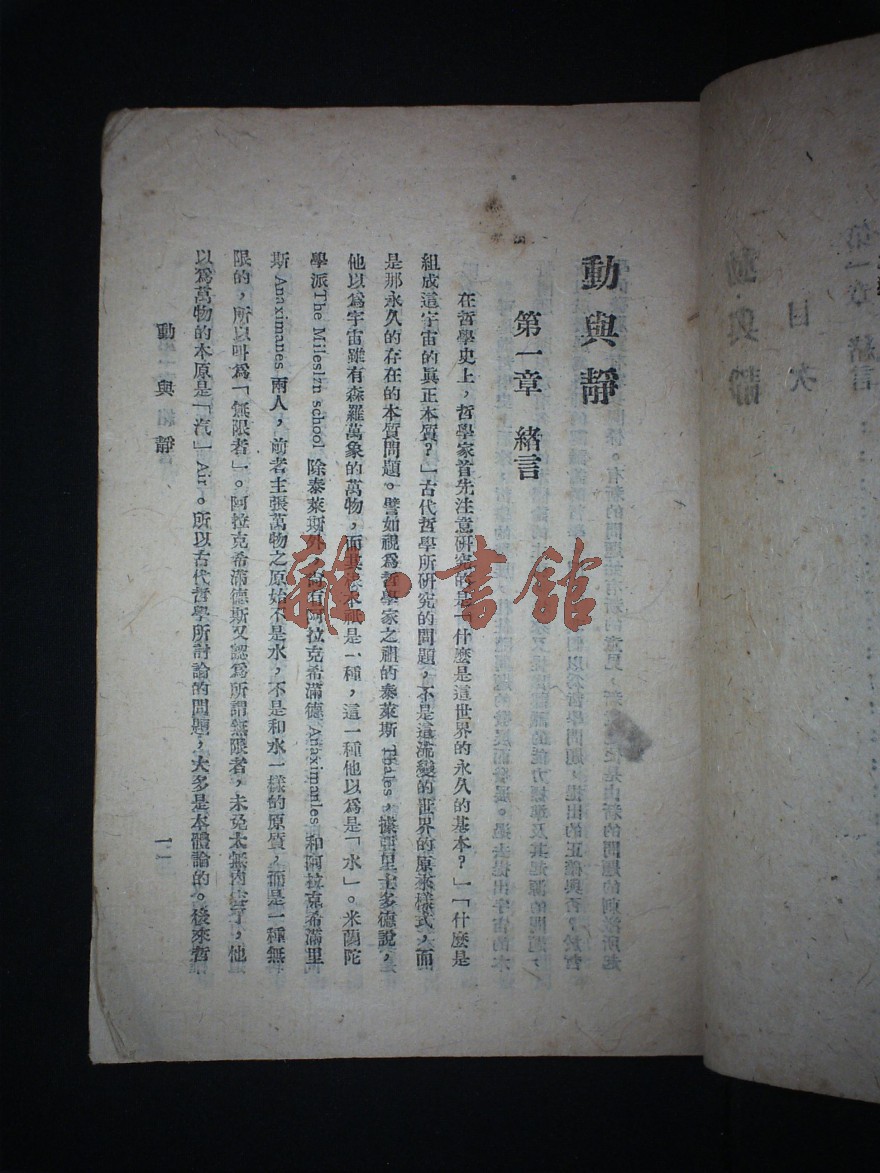 動與靜
第一章 緒言
在哲學史上，哲學家首先注意研究的是「什麼是這世界的永久的基本？」「什麼是
組成這宇宙的眞正本質？」古代哲學所研究的問題，不是這流變的世界的原來樣式，而
是那永久的存在的本質問題。譬如視爲哲學家之祖的泰萊斯 Thales，據亞里士多德說，
他以爲宇宙雖有森羅萬象的萬物，而其 祇是一種，這一種他以爲是「水」。米蘭陀
學派The Mileslzn school 除泰萊斯外，尚有阿拉克希滿德 Anaximanles 和阿拉克希滿里
斯 Anaximanes 兩人，前者主張萬物之原始不是水，不是和水一樣的原質，而是一種無
限的，所以叫爲「無限者」。阿拉克希滿德斯又認爲所謂無限者，未免太無內 了，他
以爲萬物的木原是「汽」Air。所以古代哲學所討論的問題，大多是本體論的。後來哲
動與靜
一一
雜·書館
目次
第一章 緒言
動與靜